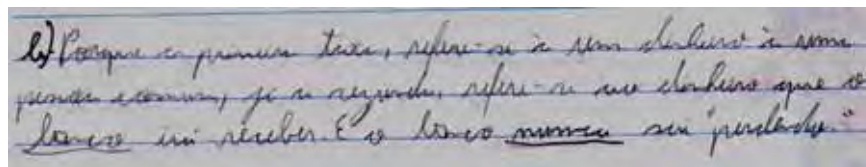 b) Porque a primeira taxa, refere-se à um dinheiro à uma
pessoa comum, já a segunda, refere-se ao dinheiro que o
banco irá receber. E o banco nunca sai "perdendo."